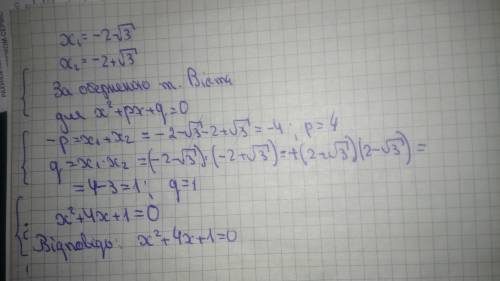 x₁ = -2-√3
x₂ = -2+√3
За оберненою т. Вієта
для x²+px+q=0
-p=x₁+x₂ = -2-√3-2+√3 = -4; p=4
q=x₁·x₂ = (-2-√3)·(-2+√3) = +(2+√3)(2-√3) =
= 4-3=1; q=1
x²+4x+1=0
Відповідь: x²+4x+1=0